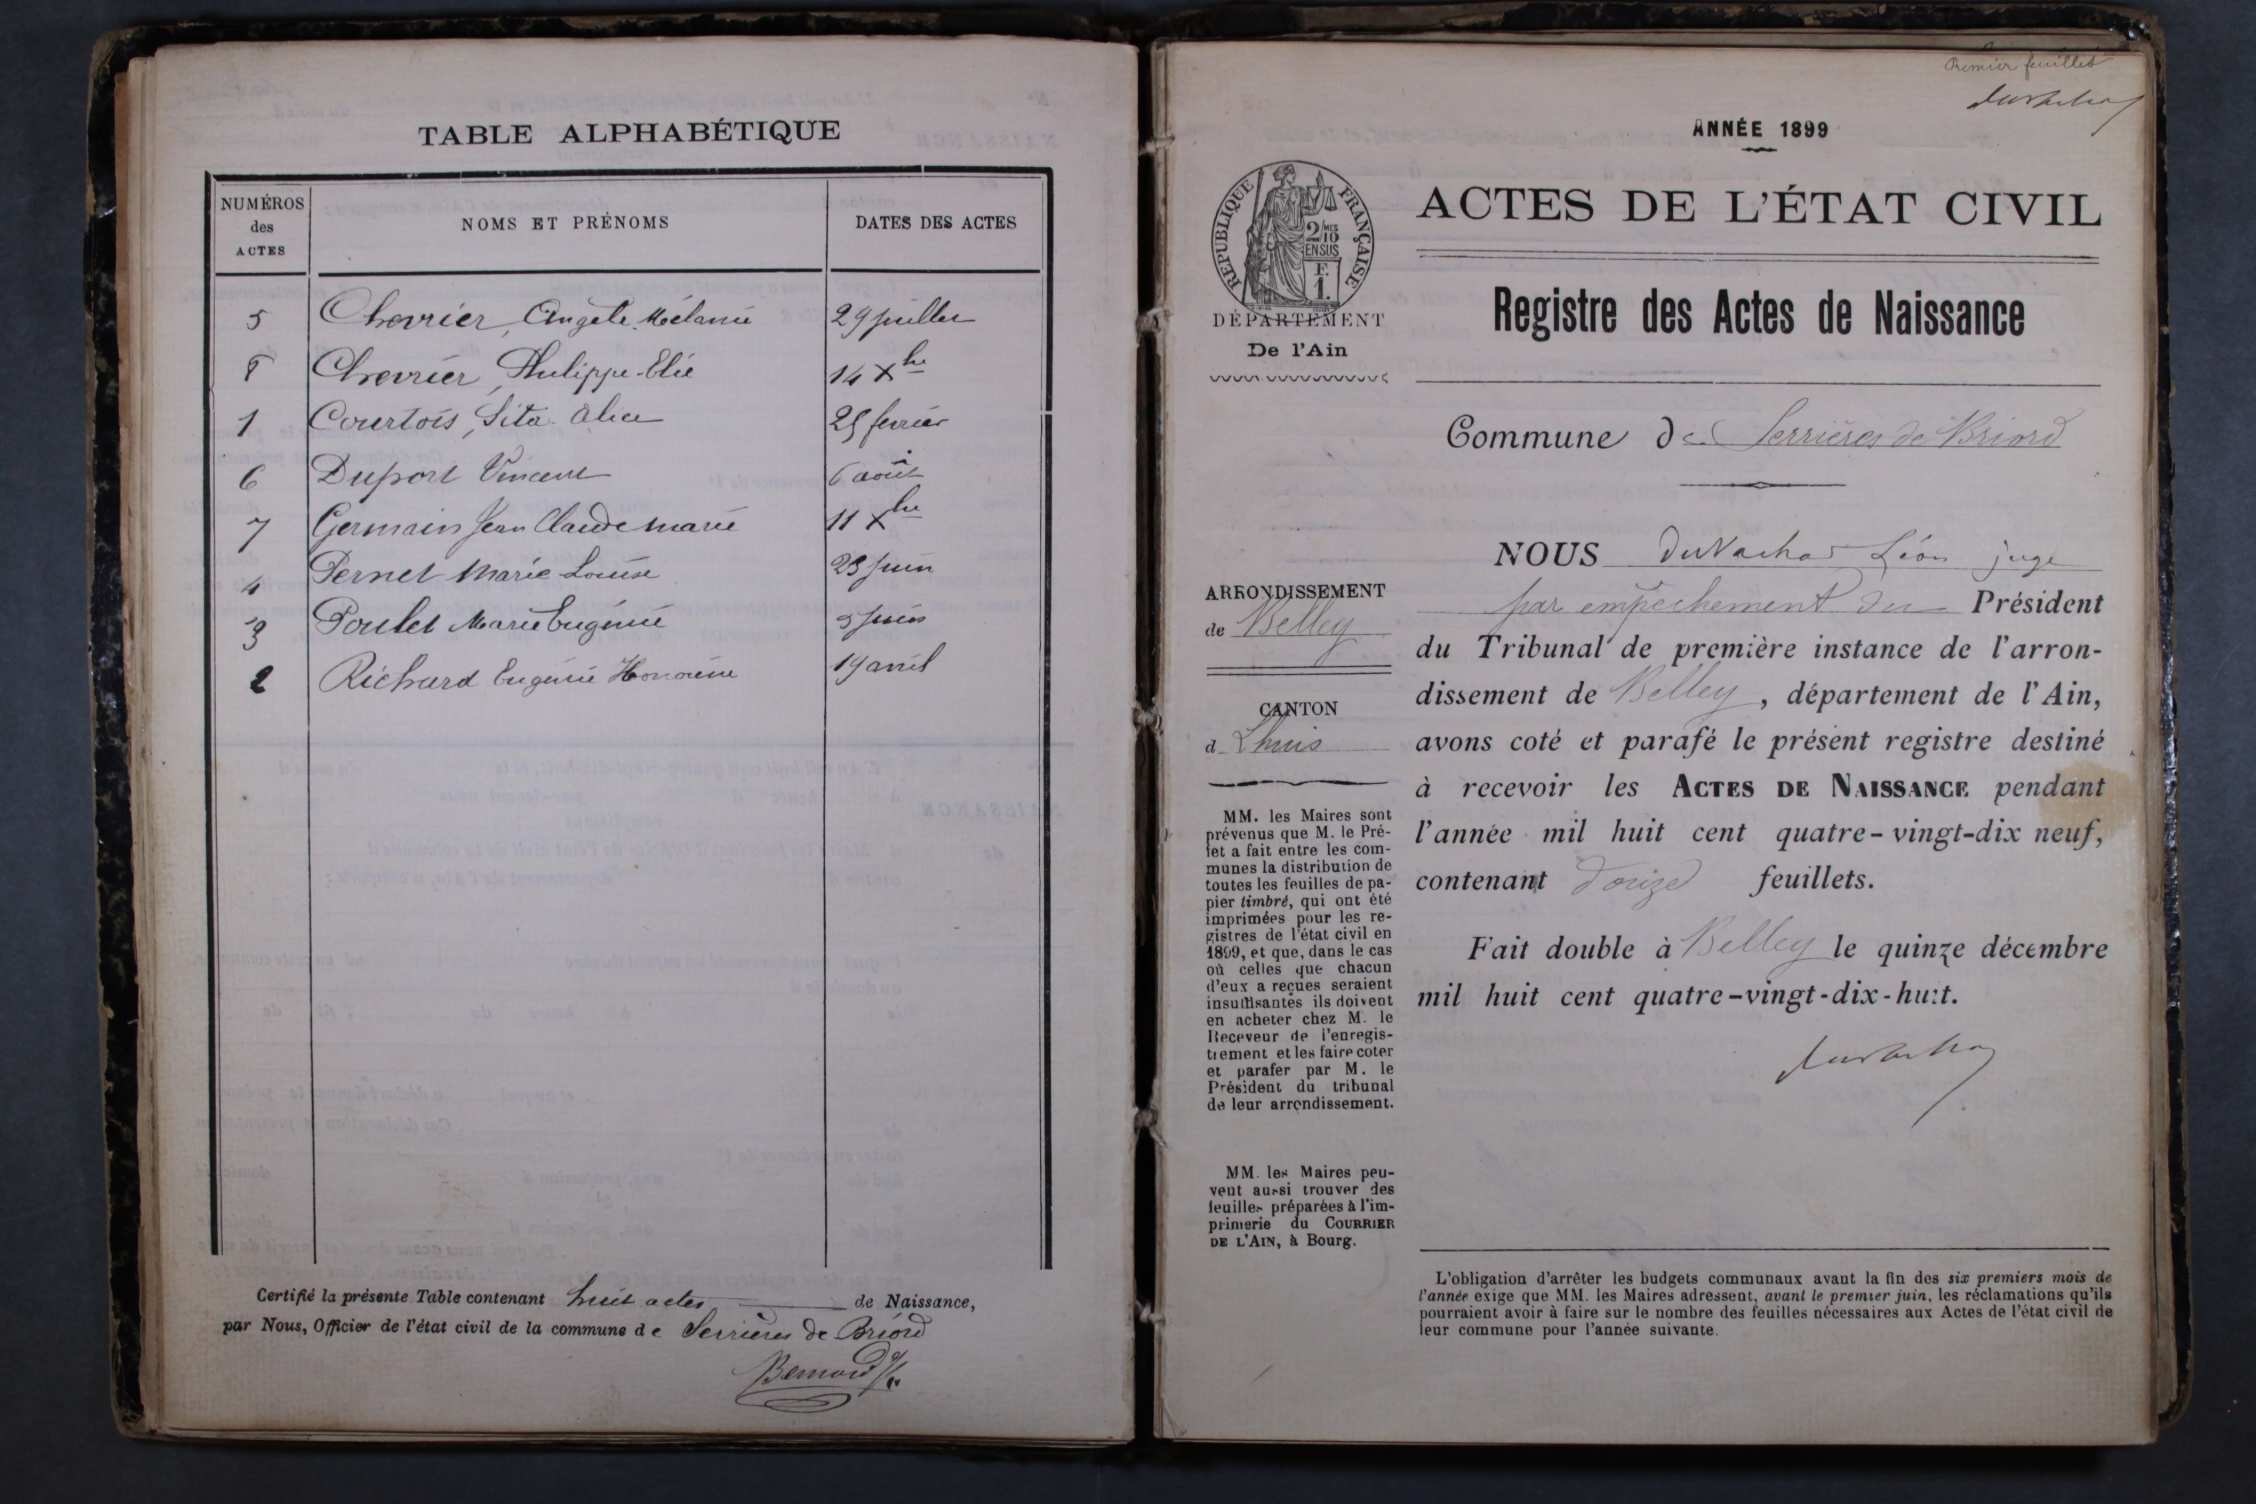 TABLE ALPHABÉTIQUE
NUMÉROS des ACTES
NOMS ET PRÉNOMS
DATES DES ACTES
5 Chevrier, Angèle Mélanie 29 juillet
8 Chevrier, Philippe-Elie 14 Xbre
1 Courtois, Sita Alice 25 fevrier
6 Duport Vincent 6 août
7 Germain Jean Claude Marie 11 Xbre
4 Pernet Marie Louise 23 juin
3 Poulet Marie Eugénie 5 juin
2 Richard Eugénie Honorine 19 avril
Certifié la présente Table contenant huit actes de Naissance,
par Nous, Officier de l'état civil de la commune de Serrières de Briord
Premier feuillet
ANNÉE 1899
RÉPUBLIQUE FRANÇAISE
2/10 MES
EN SUS
F.
1.
DÉPARTEMENT
De l'Ain
ACTES DE L'ÉTAT CIVIL
Registre des Actes de Naissance
Commune de Serrières de Briord
ARRONDISSEMENT
de Belley
CANTON
d Lhuis
MM. les Maires sont
prévenus que M. le Pré-
fet a fait entre les com-
munes la distribution de
toutes les feuilles de pa-
pier timbré, qui ont été
imprimées pour les re-
gistres de l'état civil en
1899, et que, dans le cas
où celles que chacun
d'eux a reçues seraient
insuffisantes ils doivent
en acheter chez M. le
Receveur de l'enregis-
trement et les faire coter
et parafer par M. le
Président du tribunal
de leur arrondissement.
MM. les Maires peu-
vent aussi trouver des
feuilles préparées à l'im-
primerie du COURRIER
DE L'AIN, à Bourg.
NOUS Léon juge
par empêchement du Président
du Tribunal de première instance de l'arron-
dissement de Belley, département de l'Ain,
avons coté et parafé le présent registre destiné
à recevoir les ACTES DE NAISSANCE pendant
l'année mil huit cent quatre-vingt-dix neuf,
contenant feuillets.
Fait double à Belley le quinze décembre
mil huit cent quatre-vingt-dix-huit.
L'obligation d'arrêter les budgets communaux avant la fin des six premiers mois de
l'année exige que MM. les Maires adressent, avant le premier juin, les réclamations qu'ils
pourraient avoir à faire sur le nombre des feuilles nécessaires aux Actes de l'état civil de
leur commune pour l'année suivante.